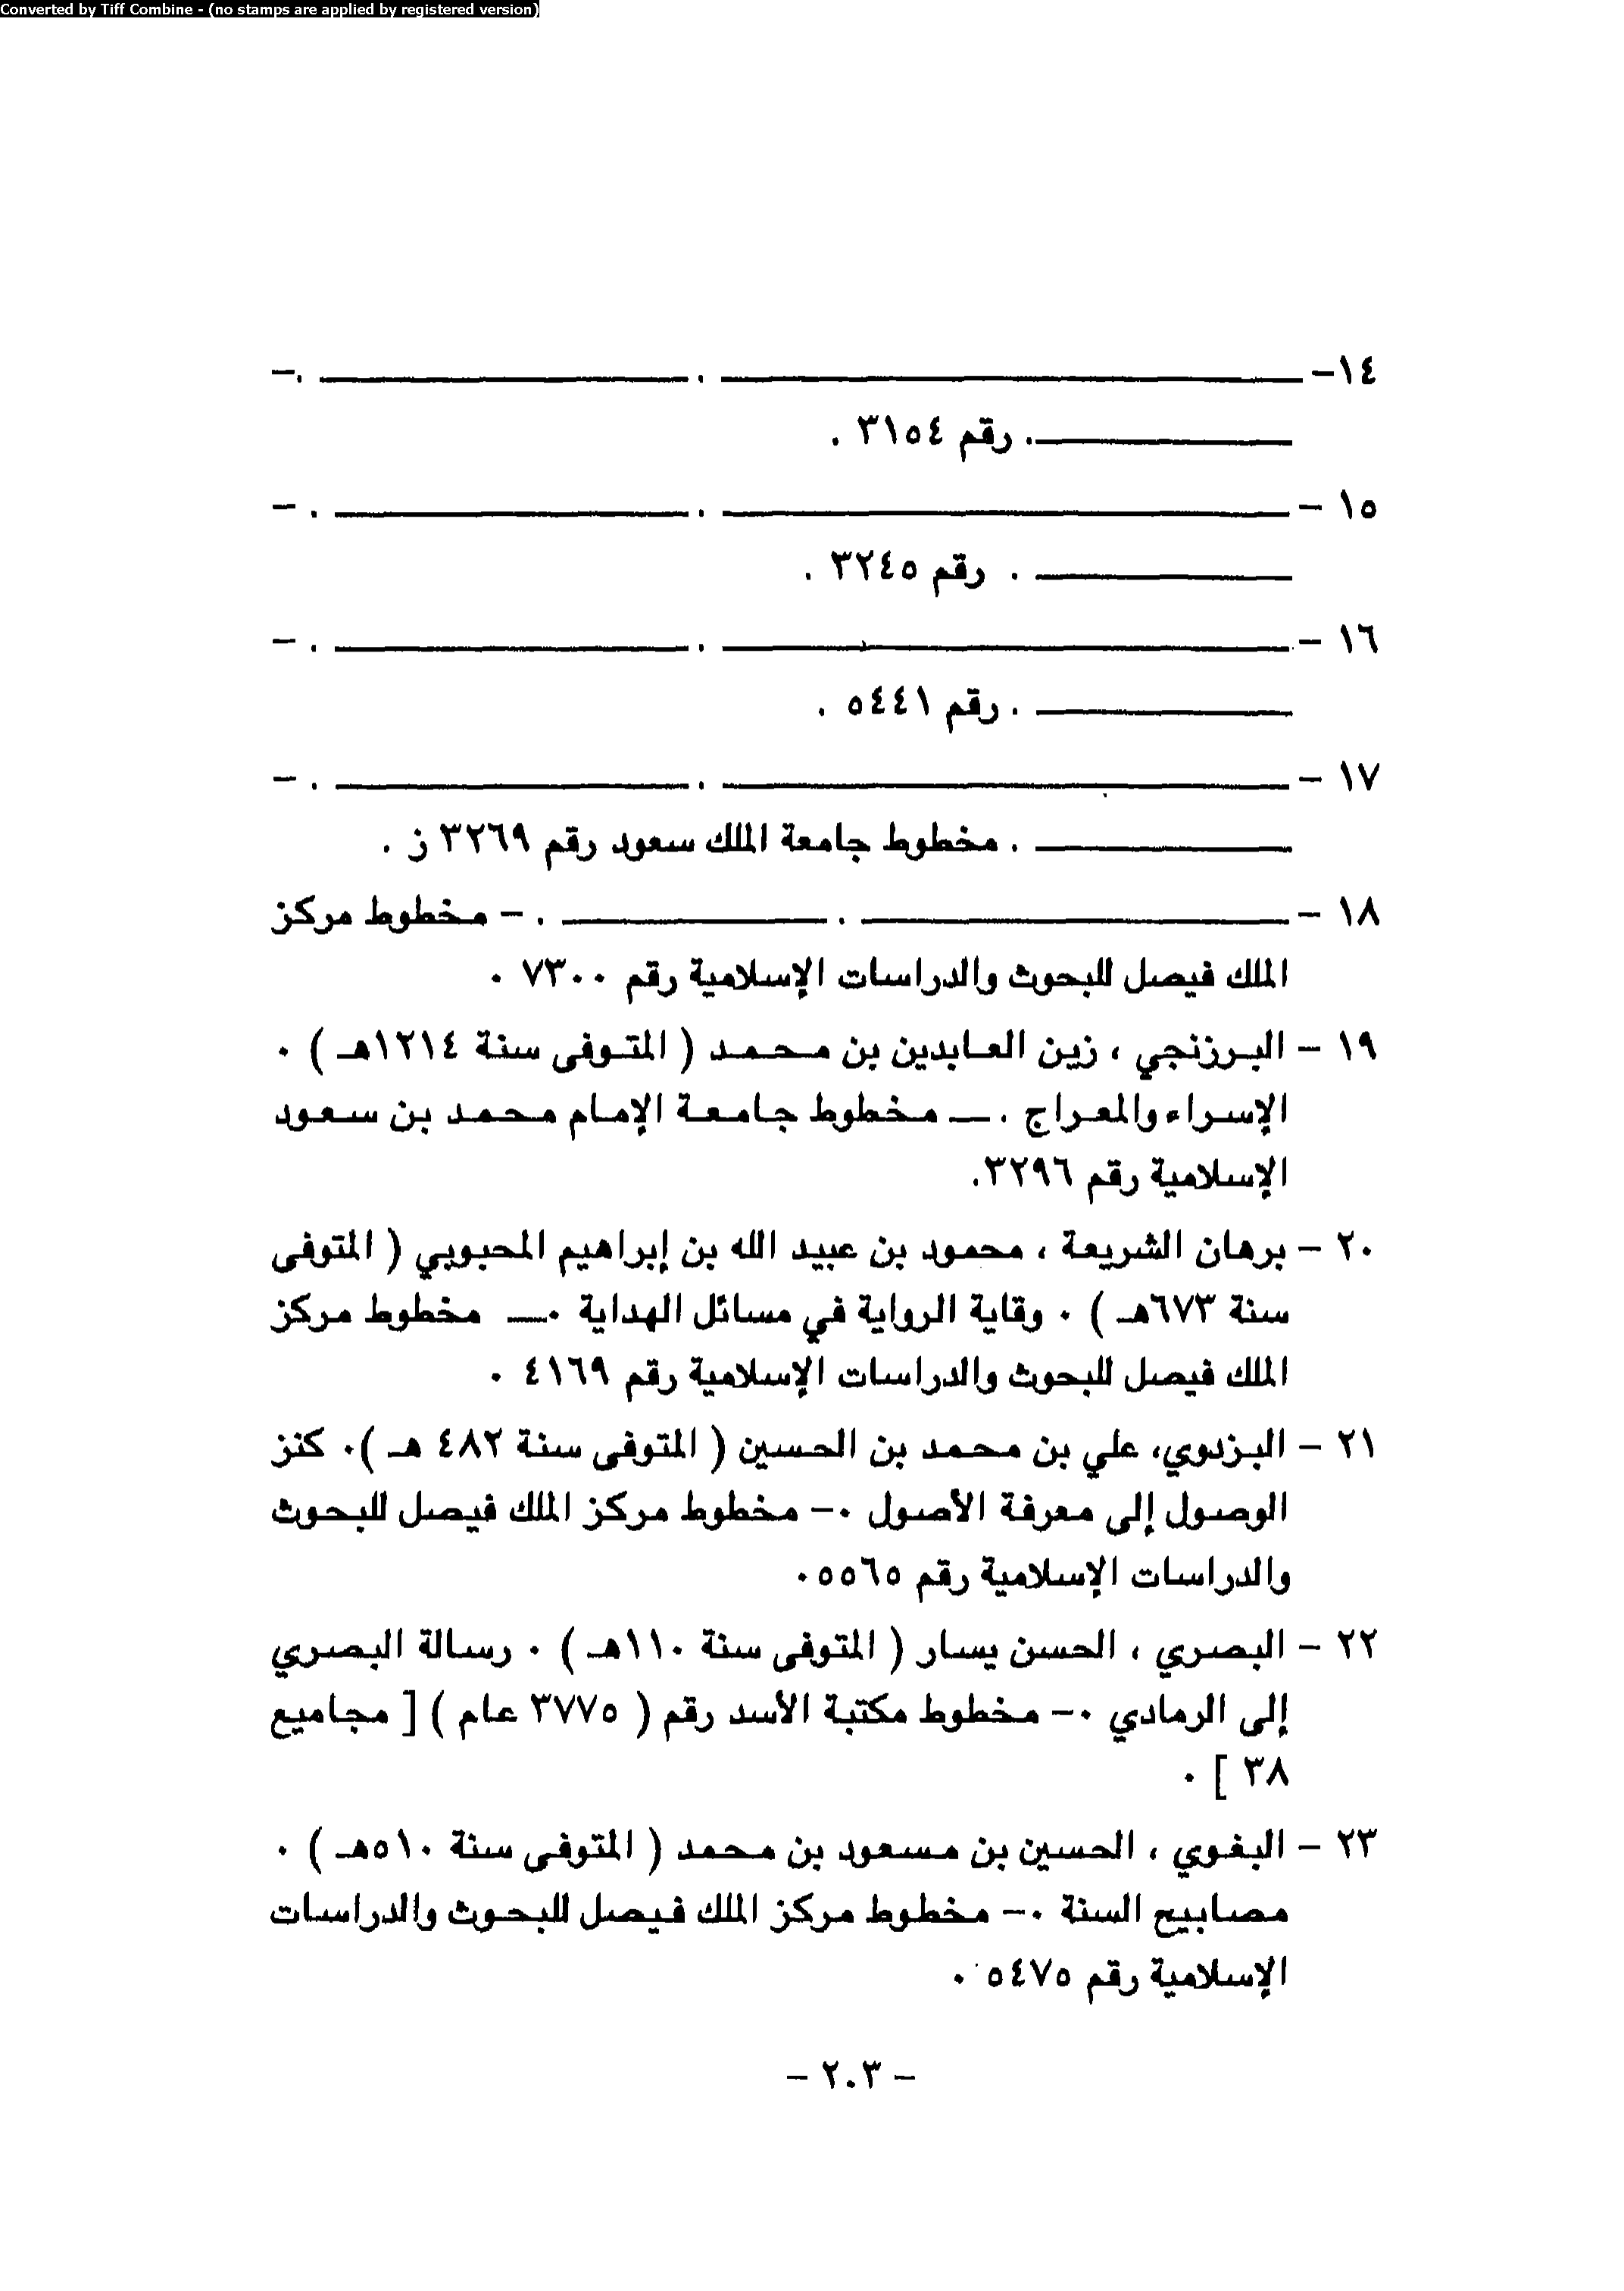 Converted by Tiff Combine - (no stamps are applied by registered version)
١٤- ــــــــــــــــــــ . ــــــــــــــــــــ .-
ــــــــــــــــــــ. رقم ٣١٥٤ .
١٥ - ــــــــــــــــــــ . ــــــــــــــــــــ . -
ــــــــــــــــــــ . رقم ٣٢٤٥ .
١٦ - ــــــــــــــــــــ . ــــــــــــــــــــ . -
ــــــــــــــــــــ . رقم ٥٤٤١ .
١٧ - ــــــــــــــــــــ . ــــــــــــــــــــ . -
ــــــــــــــــــــ . مخطوط جامعة الملك سعود رقم ٣٢٦٩ ز .
١٨ - ــــــــــــــــــــ . ــــــــــــــــــــ . - مخطوط مركز
الملك فيصل للبحوث والدراسات الإسلامية رقم ٧٣٠٠ .
١٩ - البرزنجي ، زين العابدين بن محمد ( المتوفى سنة ١٢١٤هـ ) .
الإسراء والمعراج . ـــ مخطوط جامعة الإمام محمد بن سعود
الإسلامية رقم ٣٢٩٦.
٢٠ - برهان الشريعة ، محمود بن عبيد الله بن إبراهيم المحبوبي ( المتوفى
سنة ٦٧٣هـ ) . وقاية الرواية في مسائل الهداية .ـــ مخطوط مركز
الملك فيصل للبحوث والدراسات الإسلامية رقم ٤١٦٩ .
٢١ - البزدوي، علي بن محمد بن الحسين ( المتوفى سنة ٤٨٢ هـ ). كنز
الوصول إلى معرفة الأصول .- مخطوط مركز الملك فيصل للبحوث
والدراسات الإسلامية رقم ٥٥٦٥.
٢٢ - البصري ، الحسن يسار ( المتوفى سنة ١١٠هـ ) . رسالة البصري
إلى الرمادي .- مخطوط مكتبة الأسد رقم ( ٣٧٧٥ عام ) [ مجاميع
٣٨ ] .
٢٣ - البغوي ، الحسين بن مسعود بن محمد ( المتوفى سنة ٥١٠هـ ) .
مصابيح السنة .- مخطوط مركز الملك فيصل للبحوث والدراسات
الإسلامية رقم ٥٤٧٥ .
- ٢٠٣ -